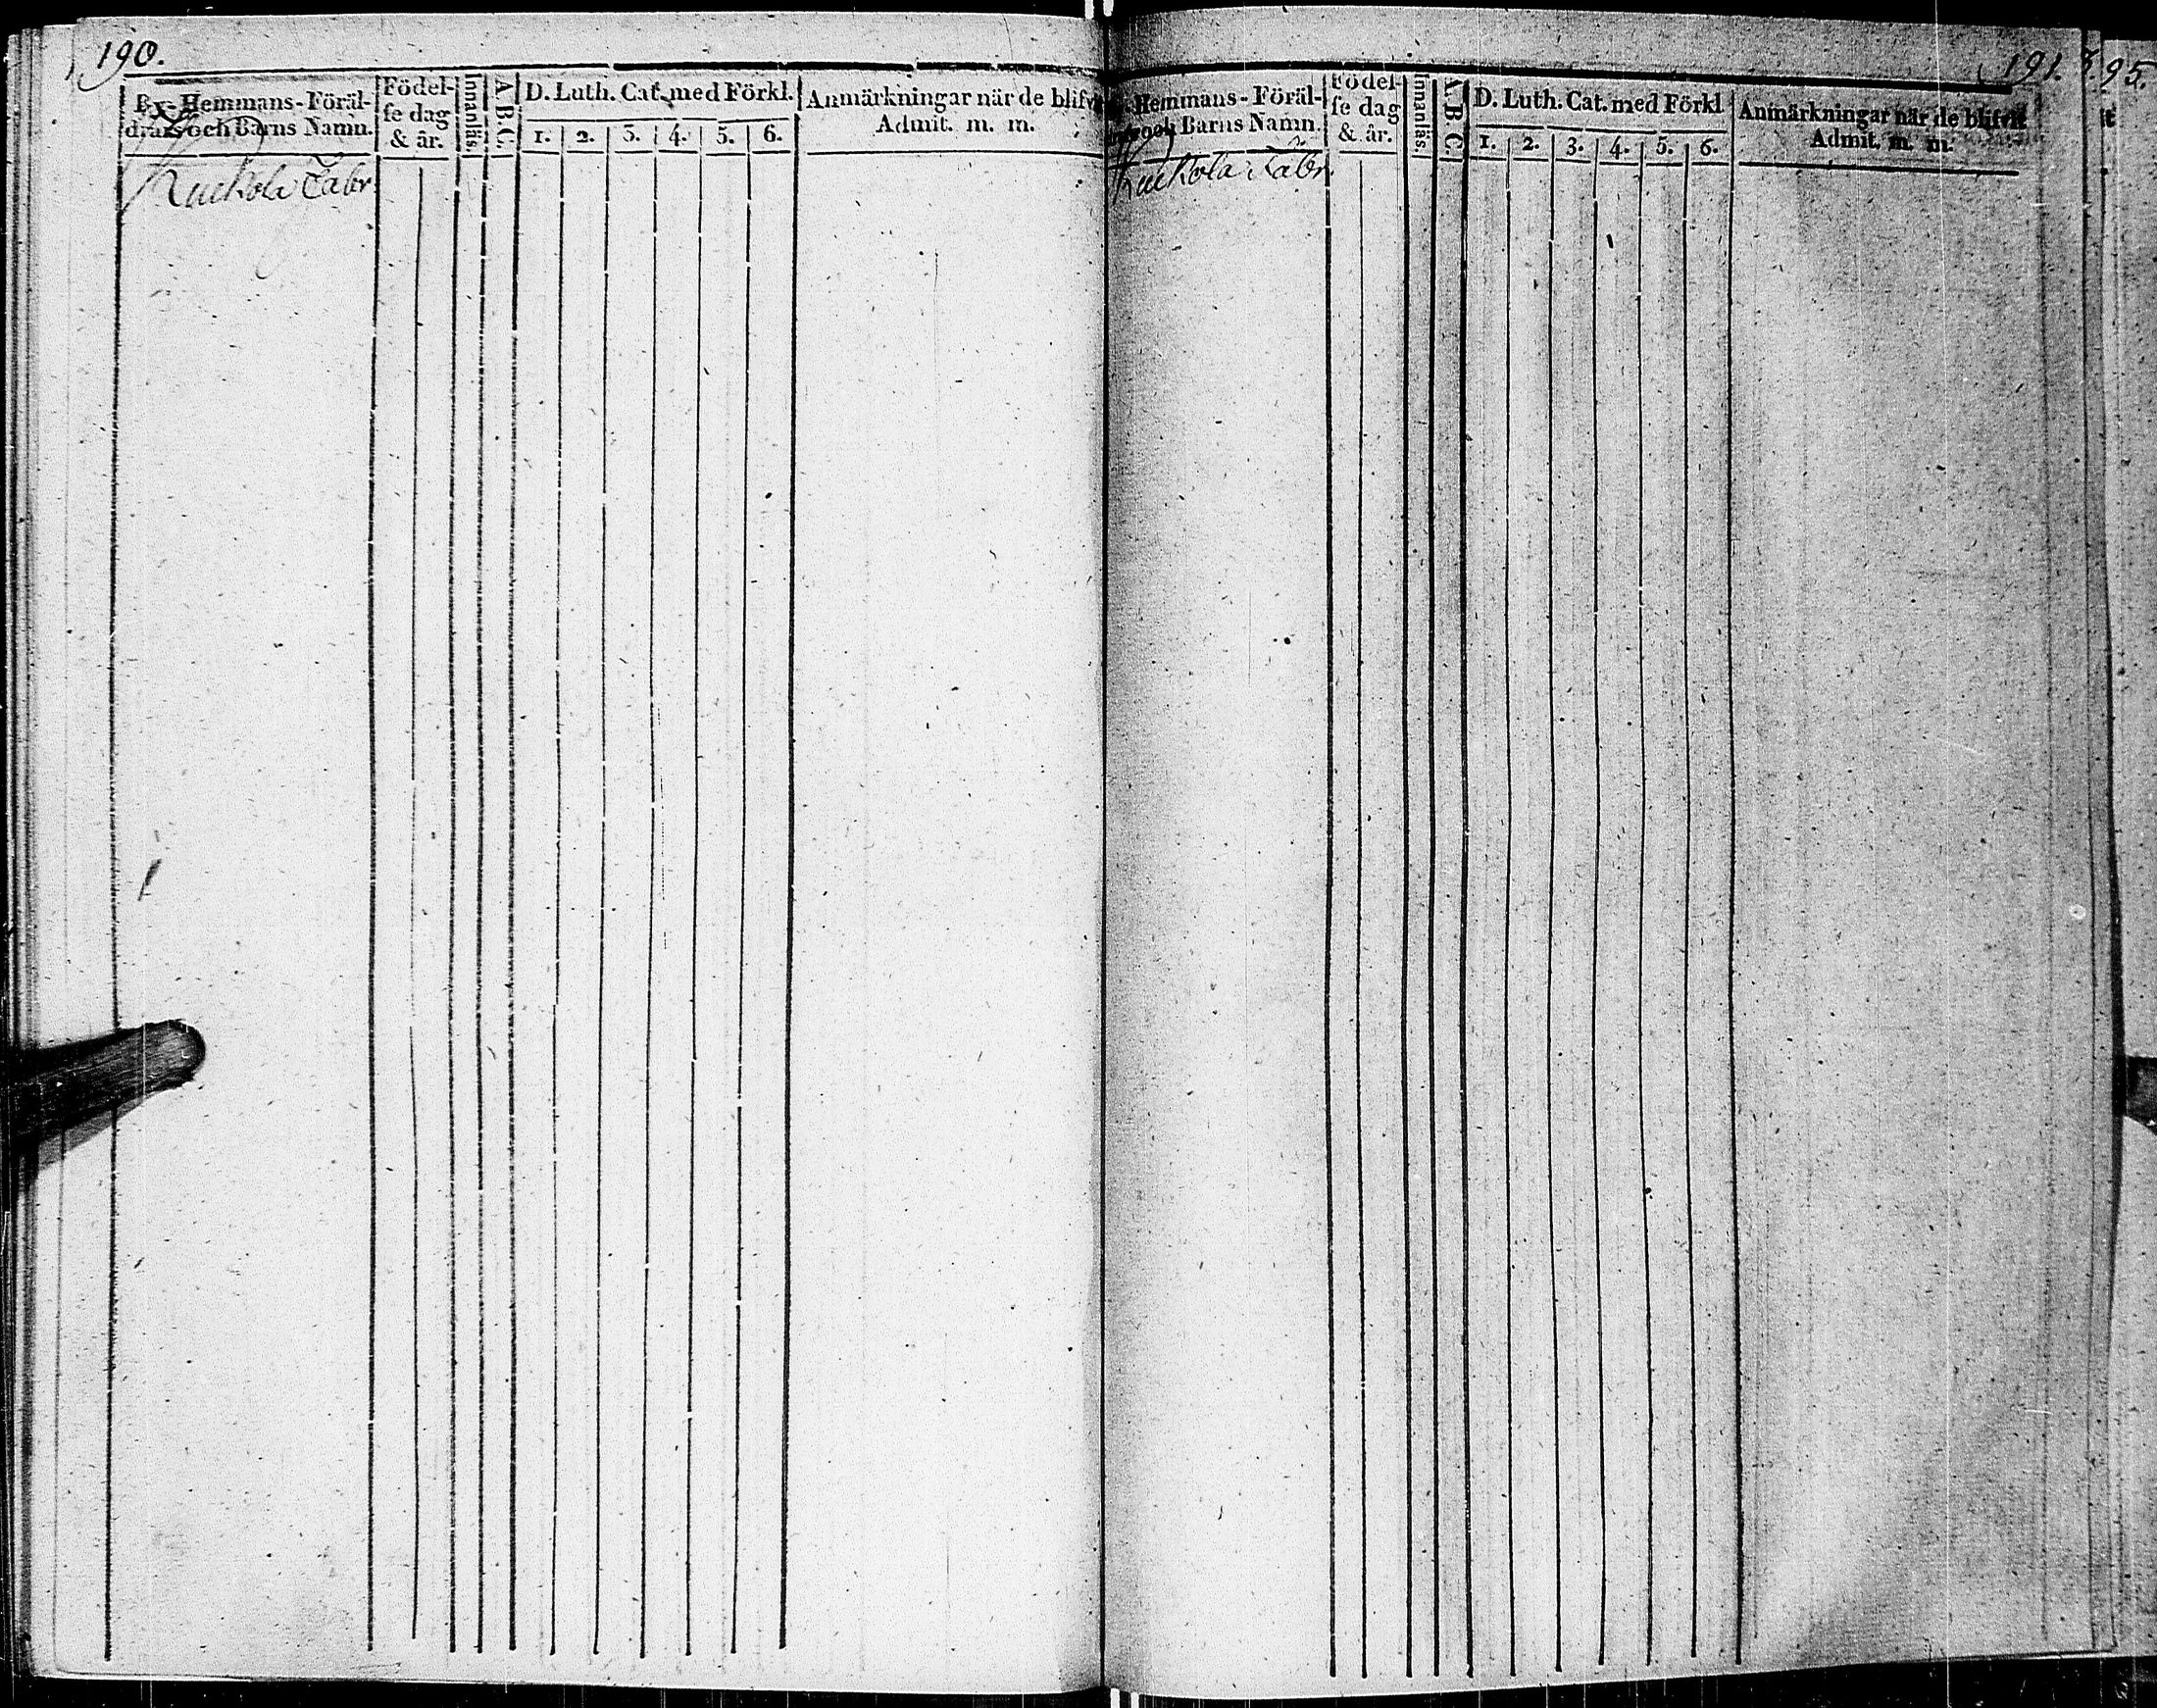 190.
By- Hemmans- Föräl-
drars och Barns Namn.
Födel-
se dag
& år.
Innanläs.
A B C
D. Luth. Cat. med Förkl.
1. 2. 3. 4. 5. 6.
Anmärkningar när de blifvit
Admit. m. m.
Kuckola Fabr.
191.
Hemmans- Föräl-
och Barns Namn.
Födel-
se dag
& år.
Innanläs
A B C
D. Luth. Cat. med Förkl
1. 2. 3. 4. 5. 6.
Anmärkningar när de blifvit
Admit. m. m.
Kuckola Fabr.
95.